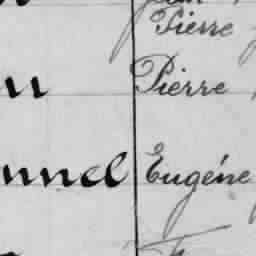 Pierre
u Pierre
nnel Eugéne